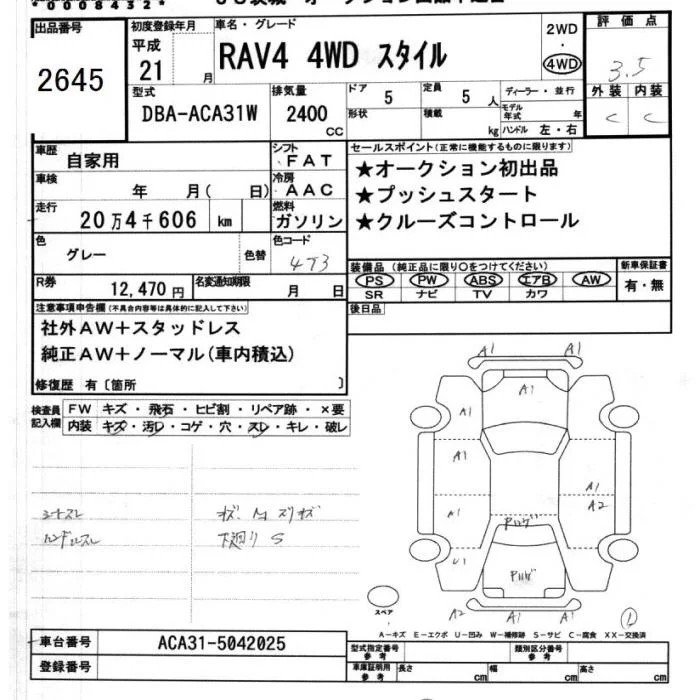 *0008432*
出品番号 初度登録年月 車名・グレード 2WD 評価点
2645 平成 21 月 RAV4 4WD スタイル ・ 4WD 3.5
型式 排気量 ドア 定員 ディーラー・並行 外装 内装
DBA-ACA31W 2400 cc 5 5人 モデル年式 年 C C
形状 積載 kg ハンドル 左・右
車歴 自家用 シフト FAT セールスポイント(正常に機能するものに限ります)
車検 年 月( 日) 冷房 AAC ★オークション初出品
走行 20万4千606 km 燃料 ガソリン ★プッシュスタート
★クルーズコントロール
色 グレー 色替 色コード 4T3
装備品(純正品に限り○をつけてください) 新車保証書
R券 12,470円 名変通知期限 月 日 PS PW ABS エアB AW 有・無
SR ナビ TV カワ
注意事項申告欄(不具合内容等は具体的に記入して下さい) 後日品
社外AW+スタッドレス
純正AW+ノーマル(車内積込)
修復歴 有〔箇所 〕
検査員記入欄 FW キズ・飛石・ヒビ割・リペア跡・×要
内装 キズ・汚レ・コゲ・穴・スレ・キレ・破レ
A1 A1
A1
A1
A1
A1 A1
A2
シートスレ
ハンドルスレ 下廻り S
U1 A1
スペア A2 A1 A1
A-キズ E-エクボ U-凹み W-補修跡 S-サビ C-腐食 XX-交換済
車台番号 ACA31-5042025 型式指定番号 参考 類別区分番号 参考
登録番号 車庫証明用 参考 長さ cm 幅 cm 高さ cm